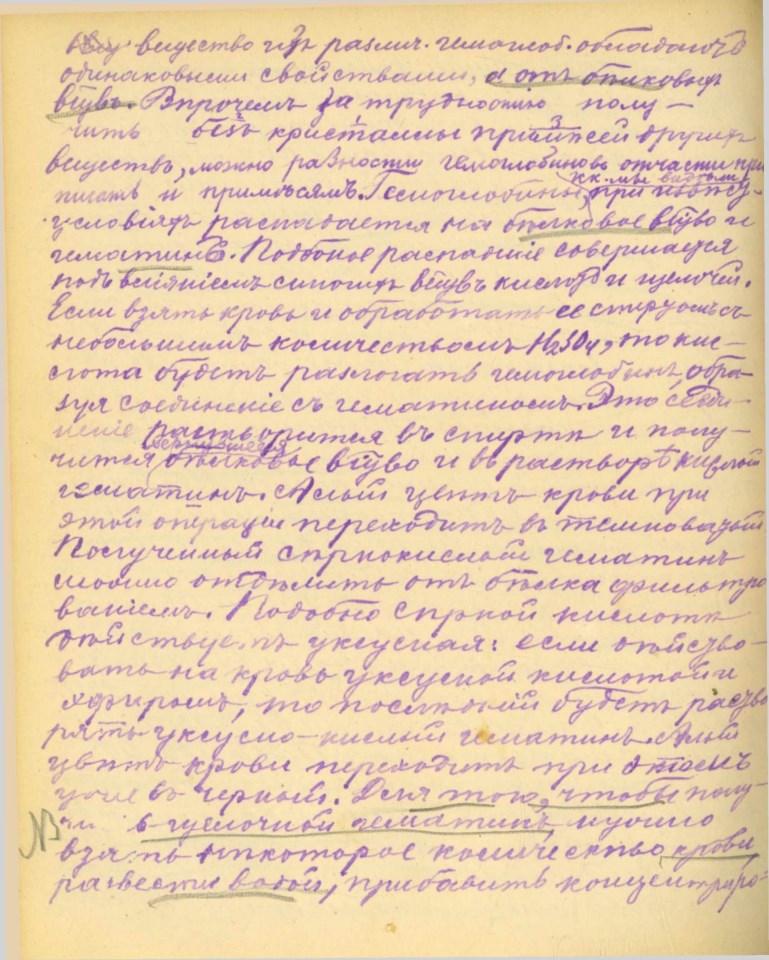 вещество изъ различ. гемоглоб. обладаютъ
одинаковыми свойствами, а отъ бѣлковыхъ
вствъ. Впрочемъ за трудностію полу-
чить безъ кристаллы примѣсей другихъ
веществъ, можно разности гемоглобиновъ отчасти при
писать и примѣсямъ. Гемоглобинъ, при извѣс.
кк. мы видѣли
условіяхъ распадается на бѣлковое вство и
гематинъ. Подобное распаденіе совершается
подъ вліяніемъ вствъ кислотъ и щелочей.
Если взять кровь и обработать ее спиртомъ съ
небольшимъ количествомъ H2SO4, то кис-
лота будетъ разлогать гемоглобинъ, обра-
зуя соединеніе съ гематиномъ. Это соеди-
неніе растворится въ спиртѣ и полу-
чится бѣлковое вство и въ растворѣ кислый
гематинъ. Алый цвѣтъ крови при
этой операціи переходитъ въ темноватый
Полученный сѣрнокислый гематинъ
можно отдѣлить отъ бѣлка фильтро
ваніемъ. Подобно сѣрной кислотѣ
дѣйствуетъ уксусная: если дѣйство-
вать на кровь уксусной кислотой и
эфиромъ, то послѣдній будетъ раство
рять уксусно-кислый гематинъ. Алый
цвѣтъ крови переходитъ при этомъ
уже въ черный. Для того, чтобы полу-
NB чи ь щелочной гематинъ, можно
взять нѣкоторое количество крови
развести водой, прибавить концентриро-